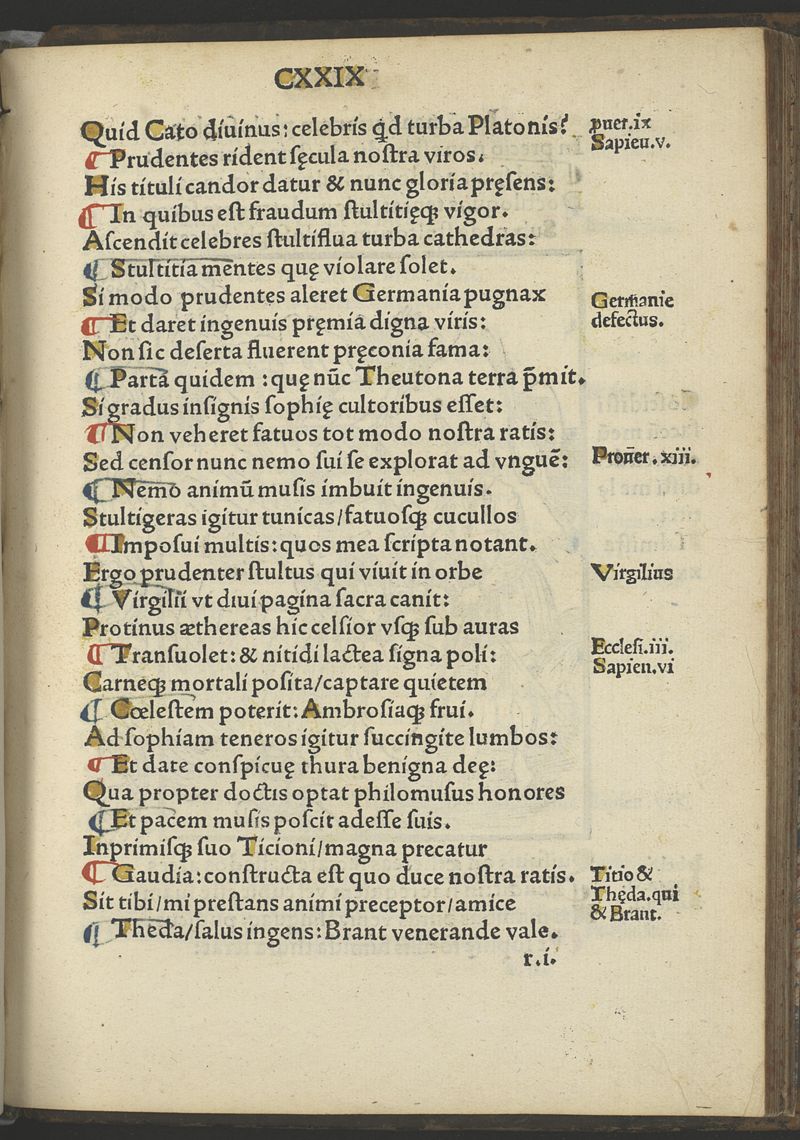 CXXIX
Quid Cato diuinus: celebris qd turba Platonis?
¶ Prudentes rident sęcula nostra viros.
His tituli candor datur & nunc gloria pręsens:
¶ In quibus est fraudum stultitięqȝ vigor.
Ascendit celebres stultiflua turba cathedras:
¶ Stultitia mentes quę violare solet.
Si modo prudentes aleret Germania pugnax
¶ Et daret ingenuis pręmia digna viris:
Non sic deserta fluerent pręconia fama:
¶ Parta quidem : quę nūc Theutona terra p̄mit.
Si gradus insignis sophię cultoribus esset:
¶ Non veheret fatuos tot modo nostra ratis:
Sed censor nunc nemo sui se explorat ad vnguē:
¶ Nemo animū musis imbuit ingenuis.
Stultigeras igitur tunicas/fatuosqȝ cucullos
¶ Imposui multis: quos mea scripta notant.
Ergo prudenter stultus qui viuit in orbe
¶ Virgilii vt diui pagina sacra canit:
Protinus æthereas hic celsior vsqȝ sub auras
¶ Transuolet: & nitidi lactea signa poli:
Carneqȝ mortali posita/captare quietem
¶ Cœlestem poterit: Ambrosiaqȝ frui.
Ad sophiam teneros igitur succingite lumbos:
¶ Et date conspicuę thura benigna deę:
Qua propter doctis optat philomusus honores
¶ Et pacem musis poscit adesse suis.
Inprimisqȝ suo Ticioni/magna precatur
¶ Gaudia: constructa est quo duce nostra ratis.
Sit tibi/mi prestans animi preceptor/amice
¶ Theda/salus ingens: Brant venerande vale.
r.i.
puer.ix
Sapieu.v.
Germanie
defectus.
Proūer.xiii.
Virgilius
Ecclesi.iii.
Sapien.vi
Titio &
Theda.qui
& Brant.